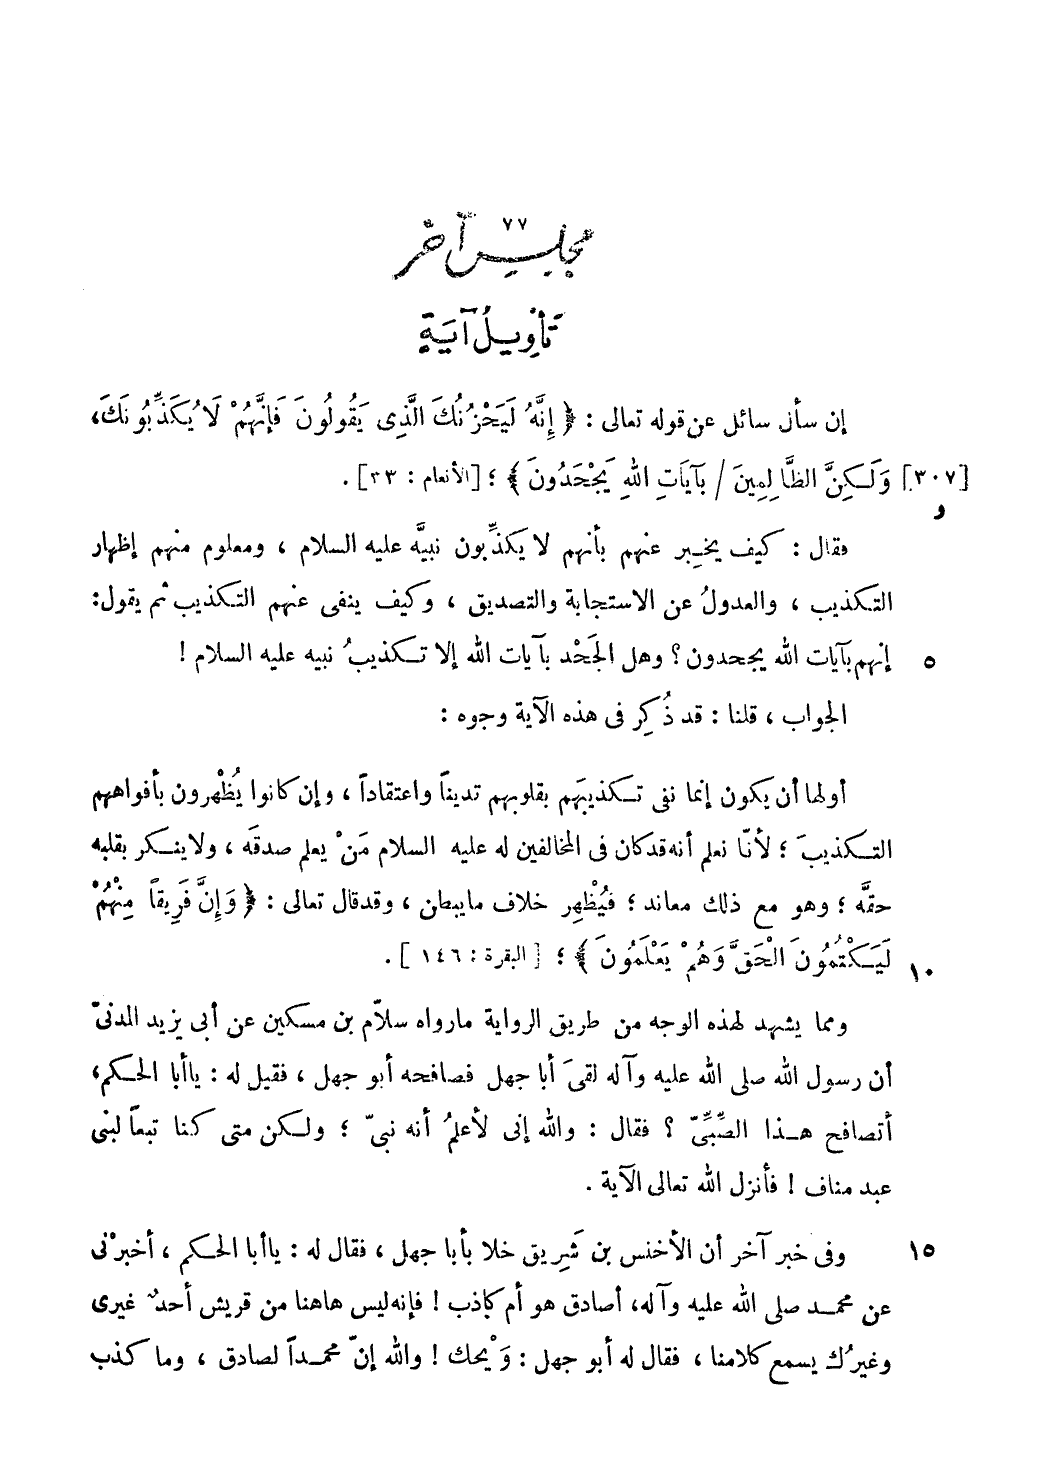 ٧٧
مجلس آخر
تأويل آية
إن سأل سائل عن قوله تعالى : ﴿ إِنَّهُ لَيَحْزُنُكَ الَّذِى يَقُولُونَ فَإِنَّهُمْ لَا يُكَذِّبُونَكَ،
[٣٠٧] وَلَكِنَّ الظَّالِمِينَ / بِآيَاتِ اللهِ يَجْحَدُونَ ﴾ ؛ [الأنعام : ٣٣] .
و
فقال : كيف يخبِر عنهم بأنهم لا يكذِّبون نبيَّه عليه السلام ، ومعلوم منهم إظهار
التكذيب ، والعدولُ عن الاستجابة والتصديق ، وكيف ينفى عنهم التكذيب ثم يقول:
إنهم بآيات الله يجحدون ؟ وهل الجَحْد بآيات الله إلا تكذيبُ نبيه عليه السلام ! ٥
الجواب ، قلنا : قد ذُكِر فى هذه الآية وجوه :
أولها أن يكون إنما نفى تكذيبَهم بقلوبهم تديناً واعتقاداً ، وإن كانوا يُظْهرون بأفواههم
التكذيبَ ؛ لأنّا نعلم أنه قد كان فى المخالفين له عليه السلام مَنْ يعلم صدقَه ، ولا ينكر بقلبه
حقَّه ؛ وهو مع ذلك معاند ؛ فيُظْهِر خلاف ما يبطن ، وقد قال تعالى : ﴿ وَإِنَّ فَرِيقاً مِنْهُمْ
لَيَكْتُمُونَ الْحَقَّ وَهُمْ يَعْلَمُونَ ﴾ ؛ [ البقرة : ١٤٦ ] . ١٠
ومما يشهد لهذه الوجه من طريق الرواية ما رواه سلاّم بن مسكين عن أبى يزيد المدنىّ
أن رسول الله صلى الله عليه وآله لقىَ أبا جهل فصافحه أبو جهل ، فقيل له : يا أبا الحكم،
أتصافح هذا الصِّبِّىّ ؟ فقال : والله إنى لأعلمُ أنه نبىّ ؛ ولكن متى كنا تبعاً لبنى
عبد مناف ! فأنزل الله تعالى الآية .
وفى خبر آخر أن الأخنس بن شَرِيق خلا بأبا جهل ، فقال له : يا أبا الحكم ، أخبرْنى ١٥
عن محمد صلى الله عليه وآله، أصادق هو أم كاذب ! فإنه ليس هاهنا من قريش أحدٌ غيرى
وغيرُك يسمع كلامنا ، فقال له أبو جهل : وَيْحك ! والله إنّ محمداً لصادق ، وما كذب